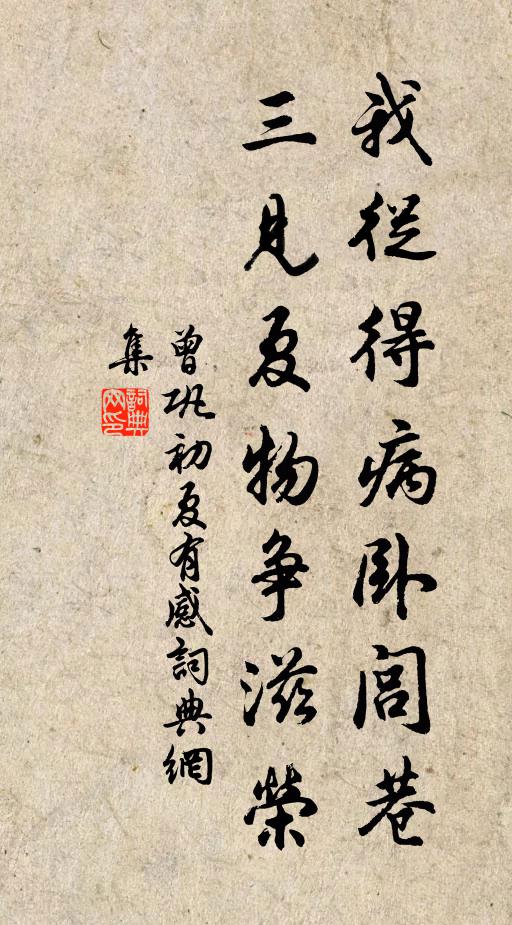 我從得病卧閭巷
三見夏物争滋榮
曾巩初夏有感詞典網
集
詞典
网印